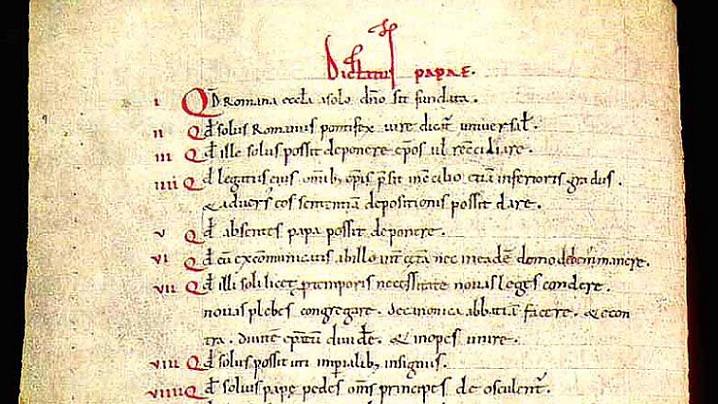 Dictatus papae.
I Qd Romana eccla a solo dno sit fundata.
II Qd solus Romanus pontifex iure dicat universal'.
III Qd ille solus possit deponere epos ul reconciliare.
IIII Qd legatus eius omnib; epis psit in concilio etiam inferioris gradus.
& adversus eos sententiam depositionis possit dare.
V Qd absentes papa possit deponere.
VI Qd cu excommunicatis ab illo int cetera nec in eade domo debem manere.
VII Qd illi soli licet p temporis necessitate novas leges condere.
novas plebes congregare. de canonica abbatia facere. & econ
tra. divite epatu divide. & inopes unire.
VIII Qd solus possit uti imperialib; insigniis.
VIIII Qd solius pape pedes oms principes deosculent.